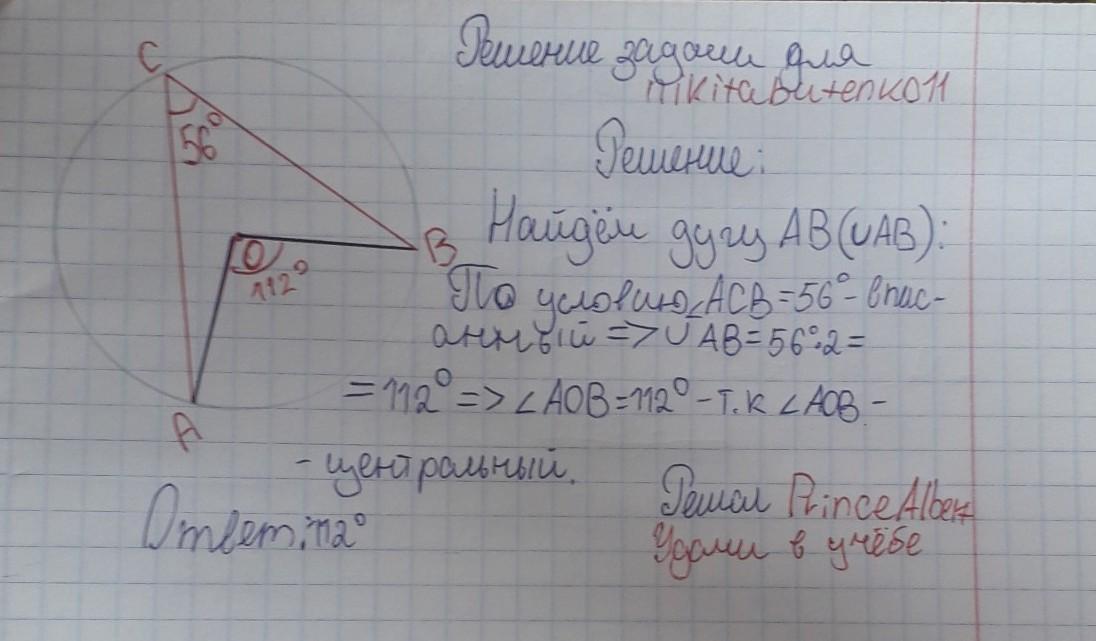 Решение задачи для
nikitabutenko11
Решение:
C
56°
Найдём дугу AB(∪AB):
B
O
112°
По условию ∠ACB=56°- впис-
анный => ∪AB=56°:2=
=112° => ∠AOB=112° - т.к ∠AOB -
A
- центральный.
Ответ: 112°
Решал PrinceAlbert
Удачи в учёбе